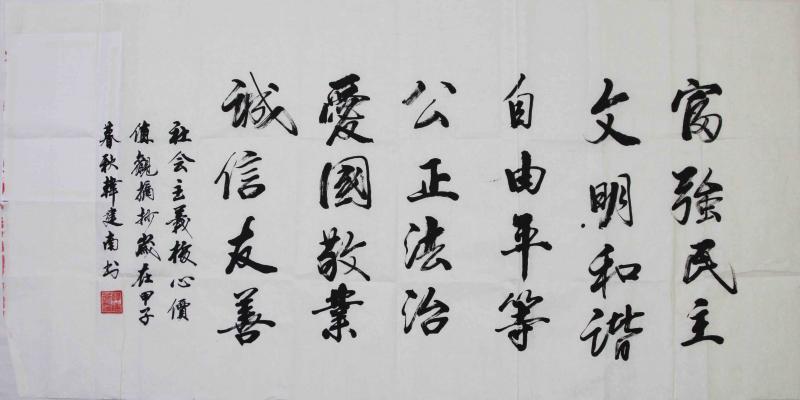 富強民主
文明和谐
自由平等
公正法治
愛國敬業
誠信友善
社会主義核心價
值觀摘抄歲在甲子
春秋韓建南书